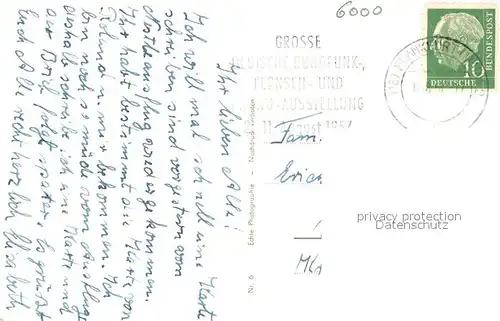 6000
GROSSE
DEUTSCHE RUNDFUNK-,
FERNSEH- UND
PHONO-AUSSTELLUNG
August 1957
10
DEUTSCHE
BUNDESPOST
FRANKFURT
Ihr lieben Alle!
Ich will mal schnell eine Karte
schreiben sind vorgestern vom
ausflug wieder gekommen.
Ihr habt bestimmt die Karte von
Roland u. mir bekommen. Ich
bin noch so müde vom Ausfluge
deshalb schreibe ich eine Karte und
aus Brief folgt später. Es grüsst
Euch Alle recht herzlich Elisabeth
Nr. 6 Echte Photographie - Nachdruck verboten
Fam.
Erica
privacy protection
Datenschutz